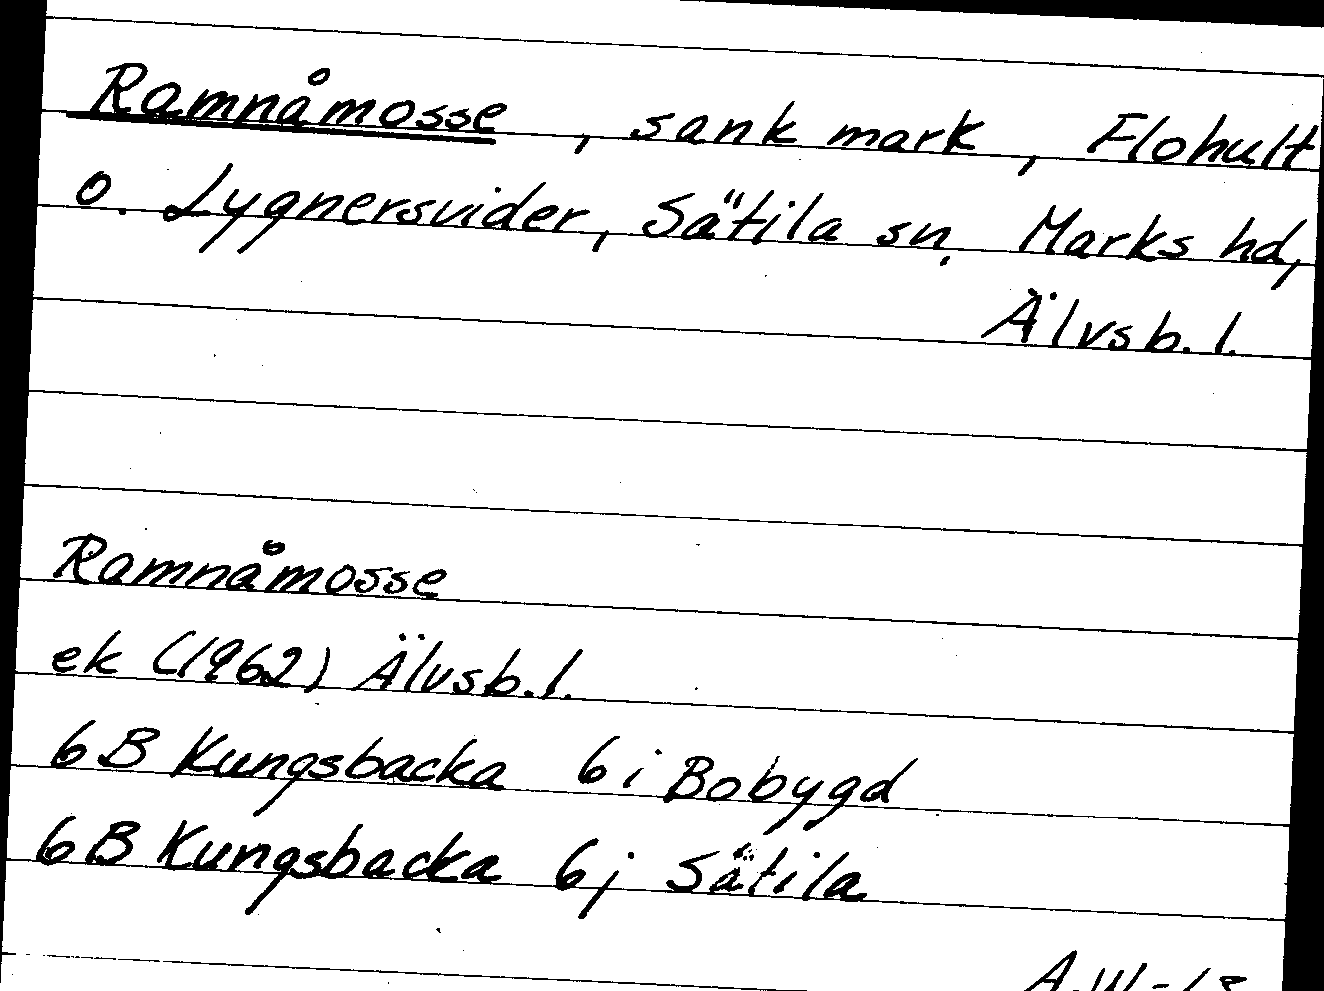 Ramnåmosse, sank mark, Flohult
o. Lygnersvider, Sätila sn, Marks hd,
Älvsb. l.
Ramnåmosse
ek (1962) Älvsb. l.
6B Kungsbacka 6i Bobygd
6B Kungsbacka 6j Sätila